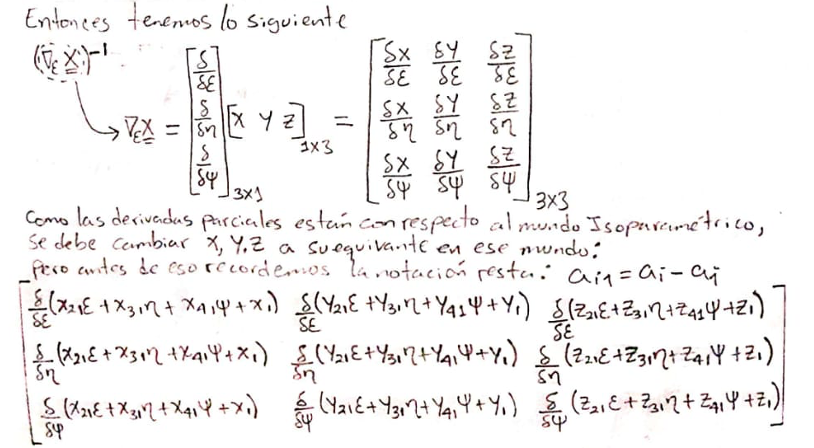 Entonces tenemos lo siguiente
(∇ε X)⁻¹
∇εX = [δ/δε δ/δη δ/δψ]3x1 [X Y Z]1x3 = [δX/δε δY/δε δZ/δε
δX/δη δY/δη δZ/δη
δX/δψ δY/δψ δZ/δψ]3x3
Como las derivadas parciales están con respecto al mundo Isoparamétrico,
se debe cambiar X, Y, Z a su equivante en ese mundo:
Pero antes de eso recordemos la notación resta: ai1 = ai - aj
[δ/δε(x21ε + x31η + x41ψ + x1) δ/δε(Y21ε + Y31η + Y41ψ + Y1) δ/δε(z21ε + z31η + z41ψ + z1)
δ/δη(x21ε + x31η + x41ψ + x1) δ/δη(Y21ε + Y31η + Y41ψ + Y1) δ/δη(z21ε + z31η + z41ψ + z1)
δ/δψ(x21ε + x31η + x41ψ + x1) δ/δψ(Y21ε + Y31η + Y41ψ + Y1) δ/δψ(z21ε + z31η + z41ψ + z1)]